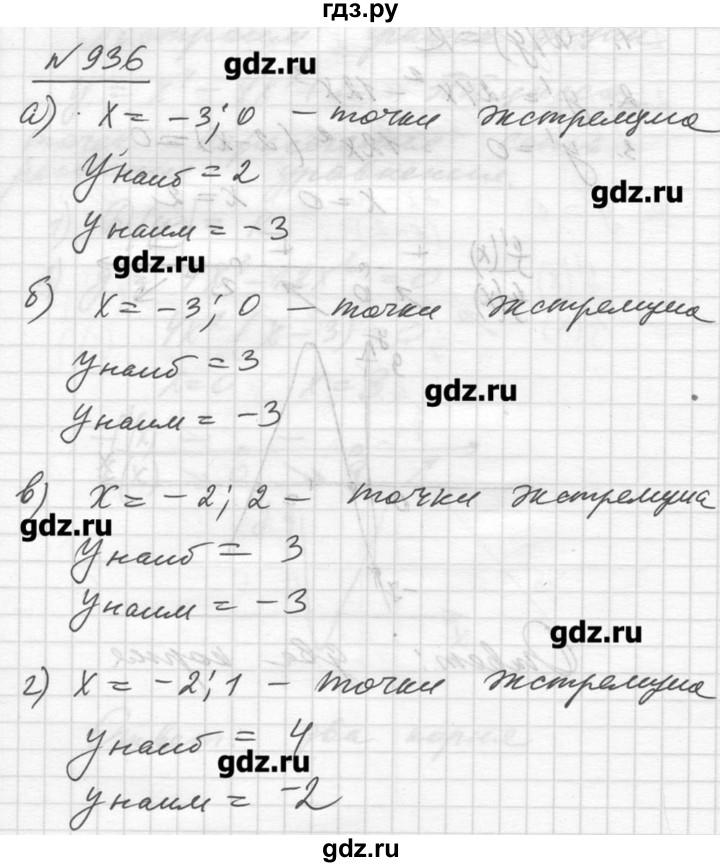 гдз.ру
№ 936
gdz.ru
а) x = -3; 0 – точки экстремума
yнаиб = 2
gdz.ru
yнаим = -3
gdz.ru
б) x = -3; 0 – точки экстремума
yнаиб = 3
gdz.ru
yнаим = -3
в) x = -2; 2 – точки экстремума
gdz.ru
yнаиб = 3
yнаим = -3
gdz.ru
г) x = -2; 1 – точки экстремума
yнаиб = 4
gdz.ru
yнаим = -2
gdz.ru